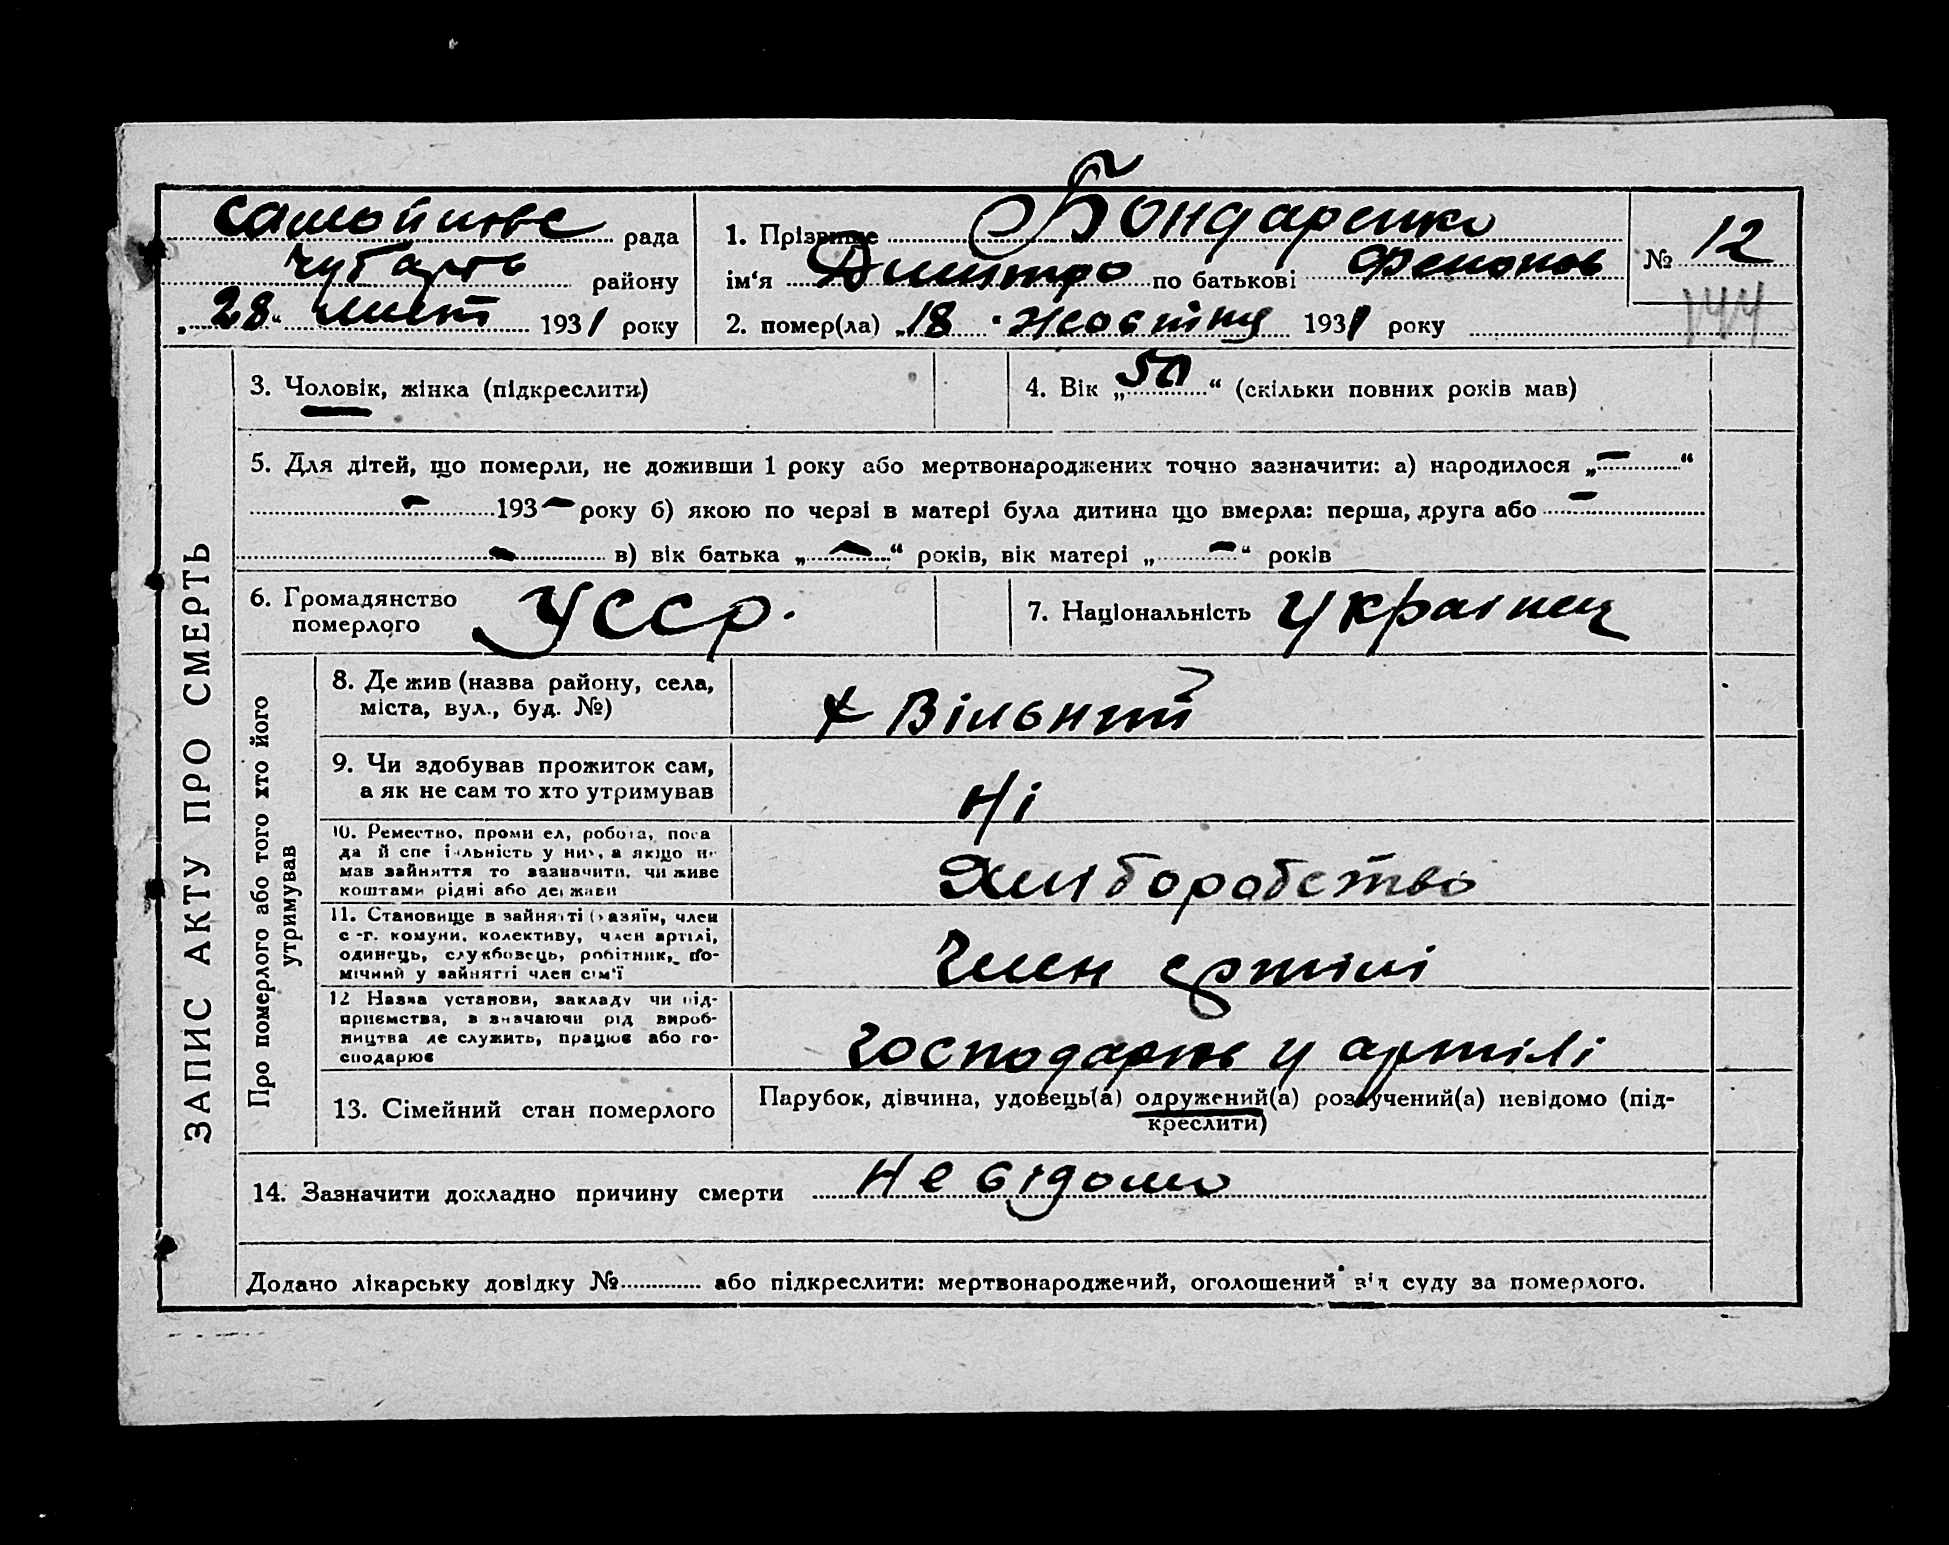 Самойлове рада
Чубарів району
„28“ лист 1931 року
1. Прізвище Бондаренко
ім‘я Дмитро по батькові
2. помер(ла) „18 “ жовтня 1931 року
№ 12
144
ЗАПИС АКТУ ПРО СМЕРТЬ
3. Чоловік, жінка (підкреслити)
4. Вік „50“ (скільки повних років мав)
5. Для дітей, що померли, не доживши 1 року або мертвонароджених точно зазначити: а) народилося „—“
— 193— року б) якою по черзі в матері була дитина що вмерла: перша, друга або —
— в) вік батька „—“ років, вік матері „—“ років
6. Громадянство
померлого
УССР.
7. Національність Українец
Про померлого або того хто його
утримував
8. Де жив (назва району, села,
міста, вул., буд. №)
х Вільний
9. Чи здобував прожиток сам,
а як не сам то хто утримував
Ні
10. Ремество, промисел, робота, поса
да й спеціяльність у них, а якщо не
мав зайняття то зазначити, чи живе
коштами рідні або держави
Хліборобство
11. Становище в зайнятті (хазяїн, член
с.-г. комуни, колективу, член артілі,
одинець, службовець, робітник, по-
мічний у зайнятті член сім‘ї
Член артілі
12 Назва установи, закладу чи під-
приємства, зазначаючи рід вироб-
ництва де служить, працює або го-
сподарює
господарює у артілі
13. Сімейний стан померлого
Парубок, дівчина, удовець(а) одружений(а) розлучений(а) невідомо (під-
креслити)
14. Зазначити докладно причину смерти Невідомо
Додано лікарську довідку № або підкреслити: мертвонароджений, оголошений від суду за померлого.